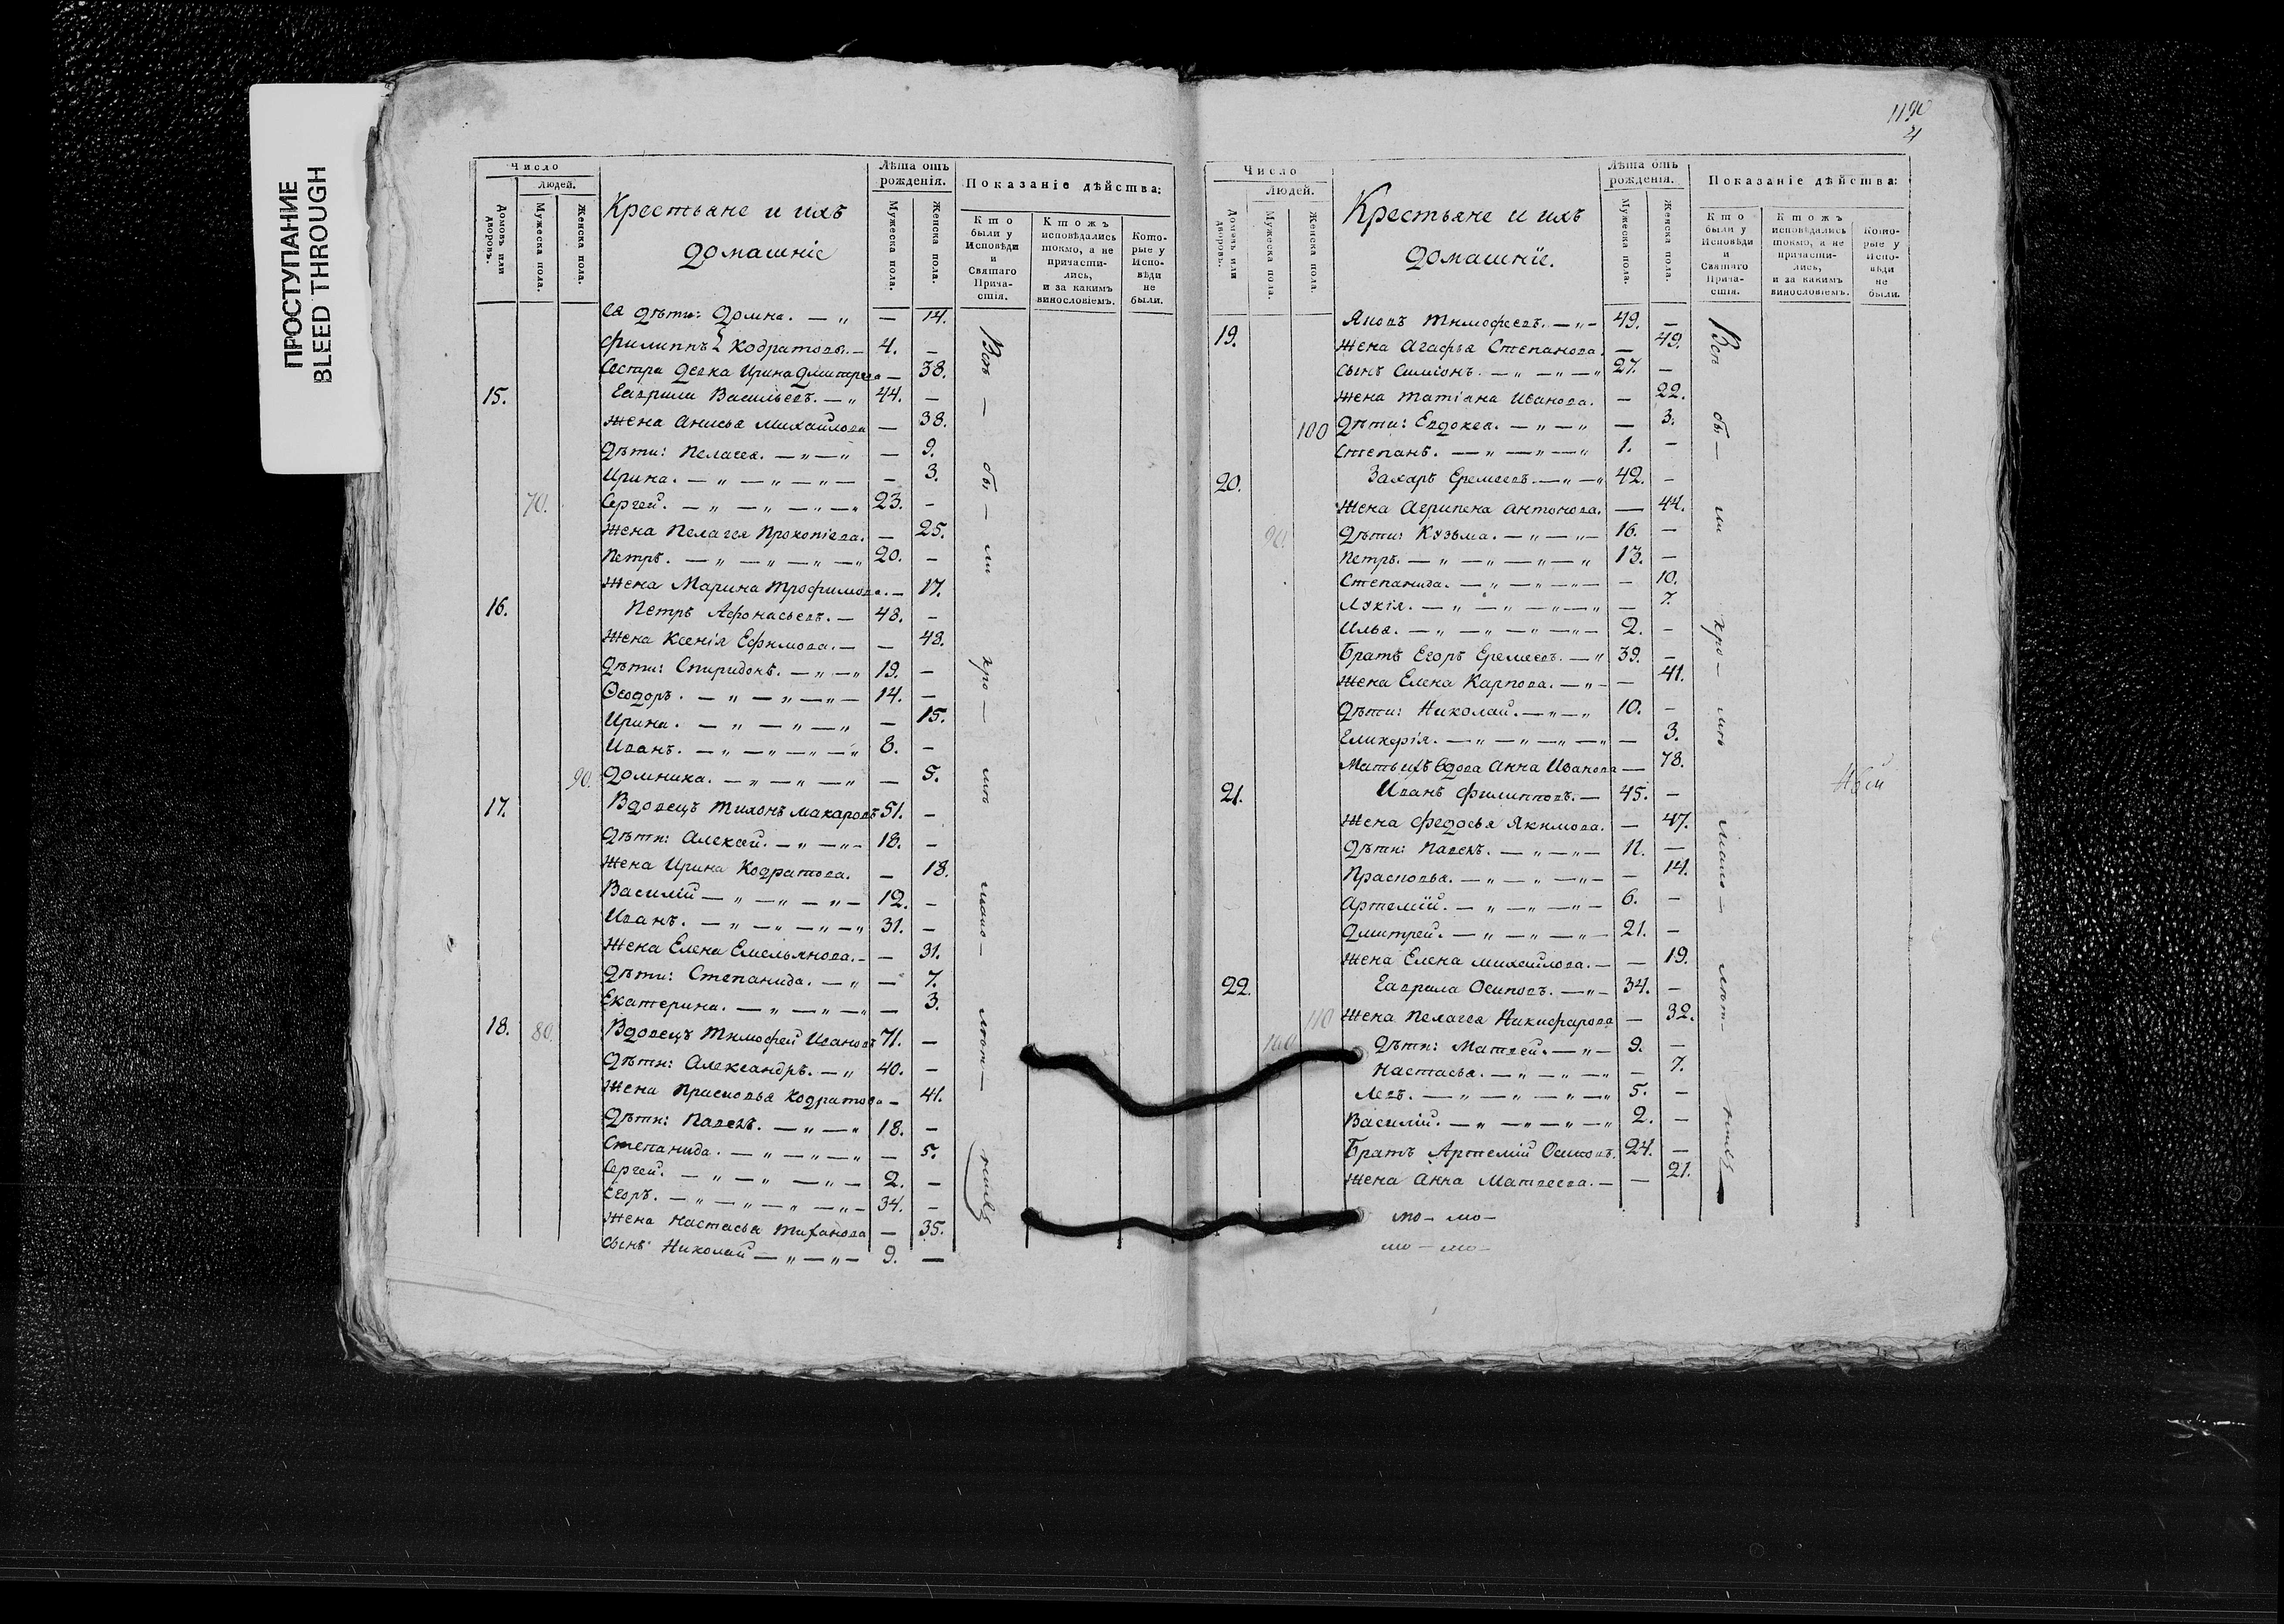 ПРОСТУПАНИЕ
BLEED THROUGH
Число
Людей.
Домовъ или дворовъ.
Мужеска пола.
Женска пола.
Крестьяне и ихъ
домашніе
Лѣта отъ рожденія.
Мужеска пола.
Женска пола.
Показаніе дѣйства:
Кто были у Исповѣди и Святаго Причастія.
Ктожъ исповѣдались токмо, а не причастились, и за какимъ винословіемъ.
Которые у Исповѣди не были.
Ея дѣти: Домна. — „ — 14.
Филиппъ} Кодратовы. — 4. —
Сестра девка Ирина Дмитрева — 38.
15. Гаврила Васильевъ. — „ 44. —
Жена Анисья Михайлова — 38.
Дѣти: Пелагея. — „ — „ — 9.
Ирина. — „ — „ — „ — — 3.
70. Сергей. — „ — „ — „ — „ 23. —
Жена Пелагея Прокопіева. — 25.
Петръ. — „ — „ — „ — „ 20. —
Жена Марина Трофимова. — 17.
16. Петръ Афонасьевъ. — 48. —
Жена Ксенія Ефимова. — — 48.
Дѣти: Спиридонъ. — „ — „ 19. —
Ѳеодоръ. — „ — „ — „ — 14. —
Ирина. — „ — „ — „ — 15.
Иванъ. — „ — „ — „ — „ 8. —
90. Домника. — „ — „ — „ — 5.
17. Вдовецъ Тихонъ Макаровъ 51. —
Дѣти: Алексѣй. — „ — „ — 18. —
Жена Ирина Кодратова. — 18.
Василій — „ — „ — „ — 12. —
Иванъ. — „ — „ — „ — „ 31. —
Жена Елена Емельянова. — — 31.
Дѣти: Степанида. — „ — 7.
Екатерина. — „ — „ — „ — 3.
18. 80. Вдовецъ Тимофей Ивановъ 71. —
Дѣти: Александръ. — „ 40. —
Жена Прасковья Кодратова — 41.
Дѣти: Павелъ. — „ — „ 18. —
Степанида. — „ — „ — „ — 5.
Сергей. — „ — „ — „ — 2. —
Егоръ. — „ — „ — „ — 34. —
Жена Настасья — 35.
Сынъ Николай — „ — „ — 9. —
Всѣ — бы — ли кро — мѣ мало — лѣт — нихъ
1190
4
Число
Людей.
Домовъ или дворовъ.
Мужеска пола.
Женска пола.
Крестьяне и ихъ
домашніе.
Лѣта отъ рожденія.
Мужеска пола.
Женска пола.
Показаніе дѣйства:
Кто были у Исповѣди и Святаго Причастія.
Ктожъ исповѣдались токмо, а не причастились, и за какимъ винословіемъ.
Которые у Исповѣди не были.
19. Яковъ Тимофеевъ. — „ — 49. —
Жена Агафья Степанова. — 49.
Сынъ Симіонъ. — „ — „ — „ 27. —
Жена Татіана Иванова. — 22.
100 Дѣти: Евдокея. — „ — „ — 3.
Степанъ. — „ — „ — „ 1. —
20. Захаръ Еремеевъ. — „ — „ 42. —
Жена Агрипена Антонова. — 44.
90. Дѣти: Кузьма. — „ — „ — 16. —
Петръ. — „ — „ — „ — „ 13. —
Степанида. — „ — „ — „ — — 10.
Лукія. — „ — „ — „ — „ — 7.
Илья. — „ — „ — „ — „ — 2. —
Братъ Егоръ Еремеевъ. — „ 39. —
Жена Елена Карпова. — „ — — 41.
Дѣти: Николай. — „ — „ 10. —
Гликерія. — „ — „ — „ — „ — 3.
Мать ихъ вдова Анна Иванова — 78.
21. Иванъ Филипповъ. — 45. —
Жена Федосья Якимова. — 47.
Дѣти: Павелъ. — „ — „ — 11. —
Прасковья. — „ — „ — „ — — 14.
Артемій. — „ — „ — „ — 6. —
Дмитрей. — „ — „ — „ — 21. —
Жена Елена Михайлова. — — 19.
22. Гаврила Осиповъ. — „ — 34. —
110 Жена Пелагея Никифарова — 32.
100 Дѣти: Матвей. — „ — 9. —
Настасья. — „ — „ — „ — 7.
Левъ. — „ — „ — „ — „ 5. —
Василій. — „ — „ — „ — „ 2. —
Братъ Артемій Осиповъ. 24. —
Жена Анна Матвеева. — — 21.
Всѣ бы — ли кро — мѣ мало — лѣт — нихъ
то — мо —
то — мо —